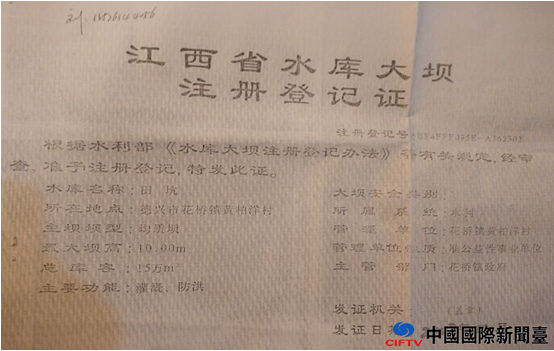 江西省水库大坝
注册登记证
注册登记号:
根据水利部《水库大坝注册登记办法》等有关规定,经审
查,准予注册登记,特发此证。
水库名称:田坑
大坝安全类别:
所在地点:德兴市花桥镇黄柏洋村
所属系统:水利
主坝坝型:均质坝
管理单位:花桥镇黄柏洋村
最大坝高:10.00m
管理单位性质:准公益性事业单位
总库容:15万m³
主管部门:花桥镇政府
主要功能:灌溉、防洪
发证机关:(盖章)
发证日期
CIFTV 中國國際新聞臺